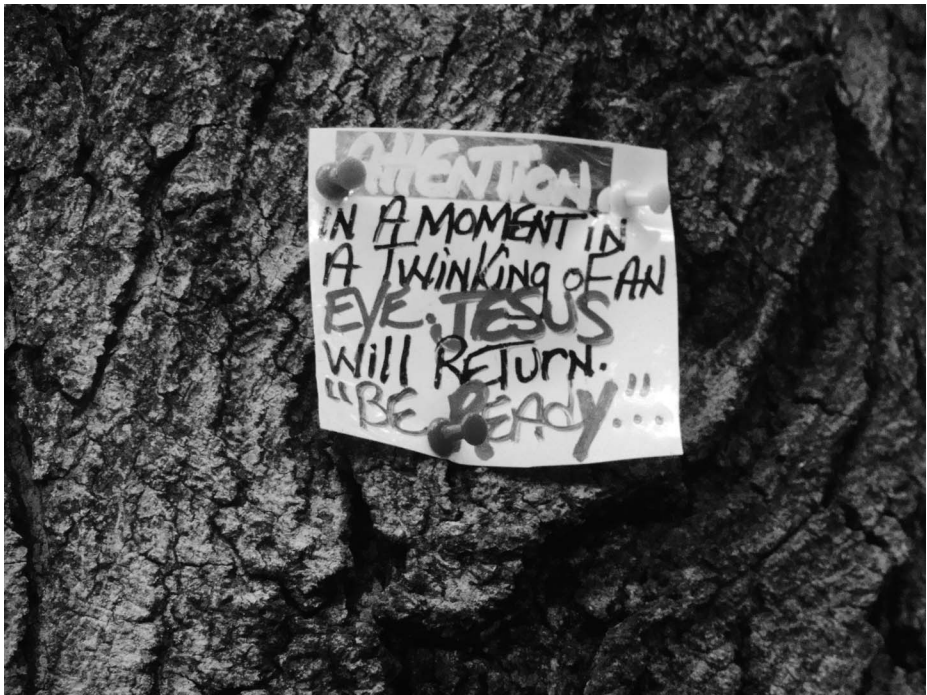 ATTENTION.
IN A MOMENT IN
A TWINKING OF AN
EYE. JESUS
WILL RETURN.
"BE READY"...